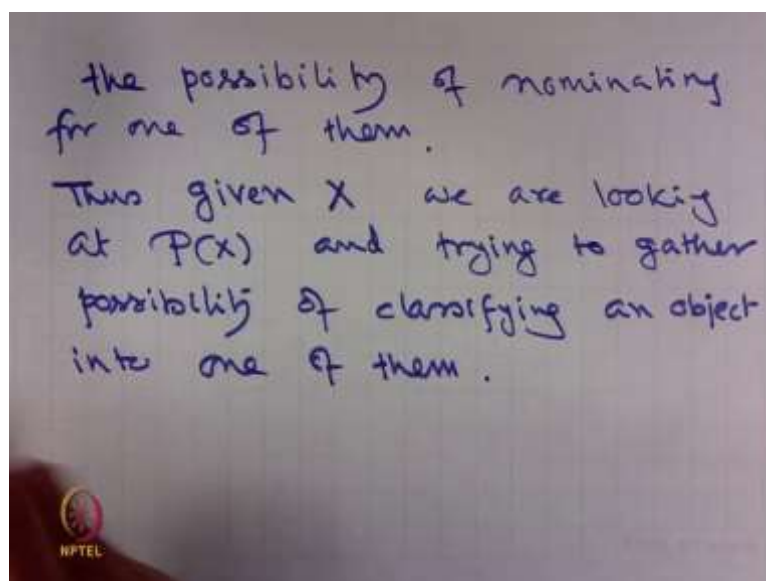 the possibility of nominating
for one of them.
Thus given X we are looking
at P(X) and trying to gather
possibility of classifying an object
into one of them.
NPTEL